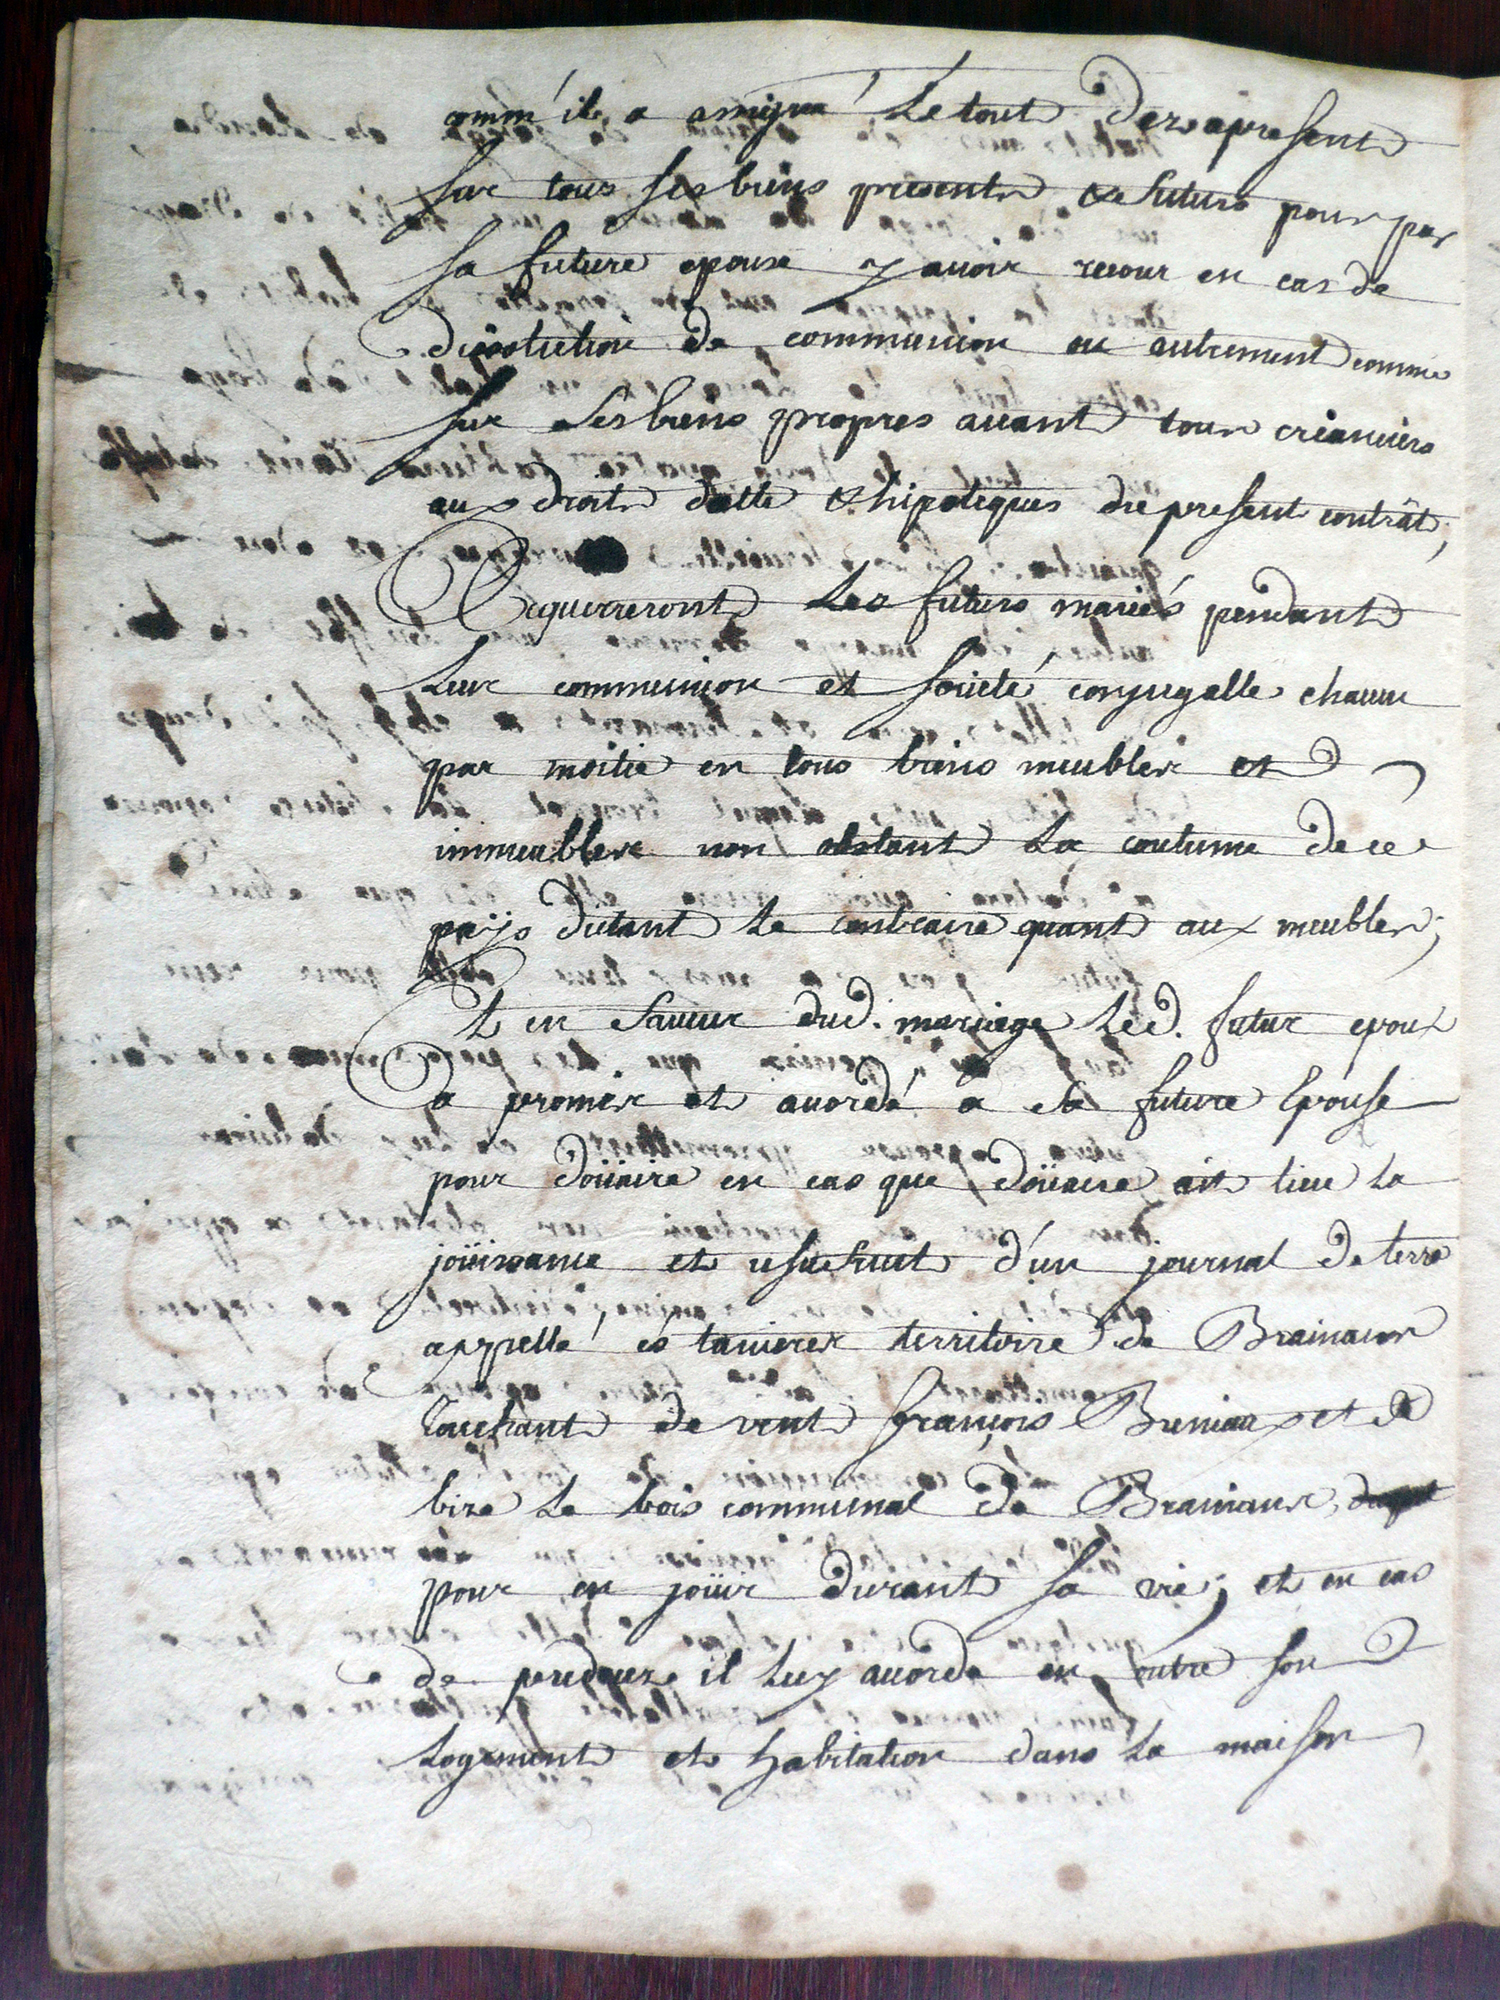 comm'il a assigné Le tout dez apresent
sur tous ses biens presents & futurs pour par
sa future epouse y avoir recour en cas de
dissolution de communion ou autrement comme
sur ses biens propres avant tous créanciers
aux droits datte & hipoteques du present contrât;
Acquerreront Les futurs mariés pendant
Leur communion et société conjugalle chacun
par moitié en tous biens meubles et
immeubles non obstant La coutume de ce
païs dictant Le contraire quant aux meubles;
Et en faveur dud. mariage Led. futur epoux
a promis et accordé a sa future Epouse
pour doüaire en cas que doüaire ait lieu La
joüissance et usufruit d'un journal de terre
appellé és tanieres territoire de Brainans
Touchant de vent françois Buniaux et de
bize Le bois communal de Brainans,
pour en joüir durant sa vie; et en cas
de il Luy accorde en outre son
Logement et habitation dans La maison